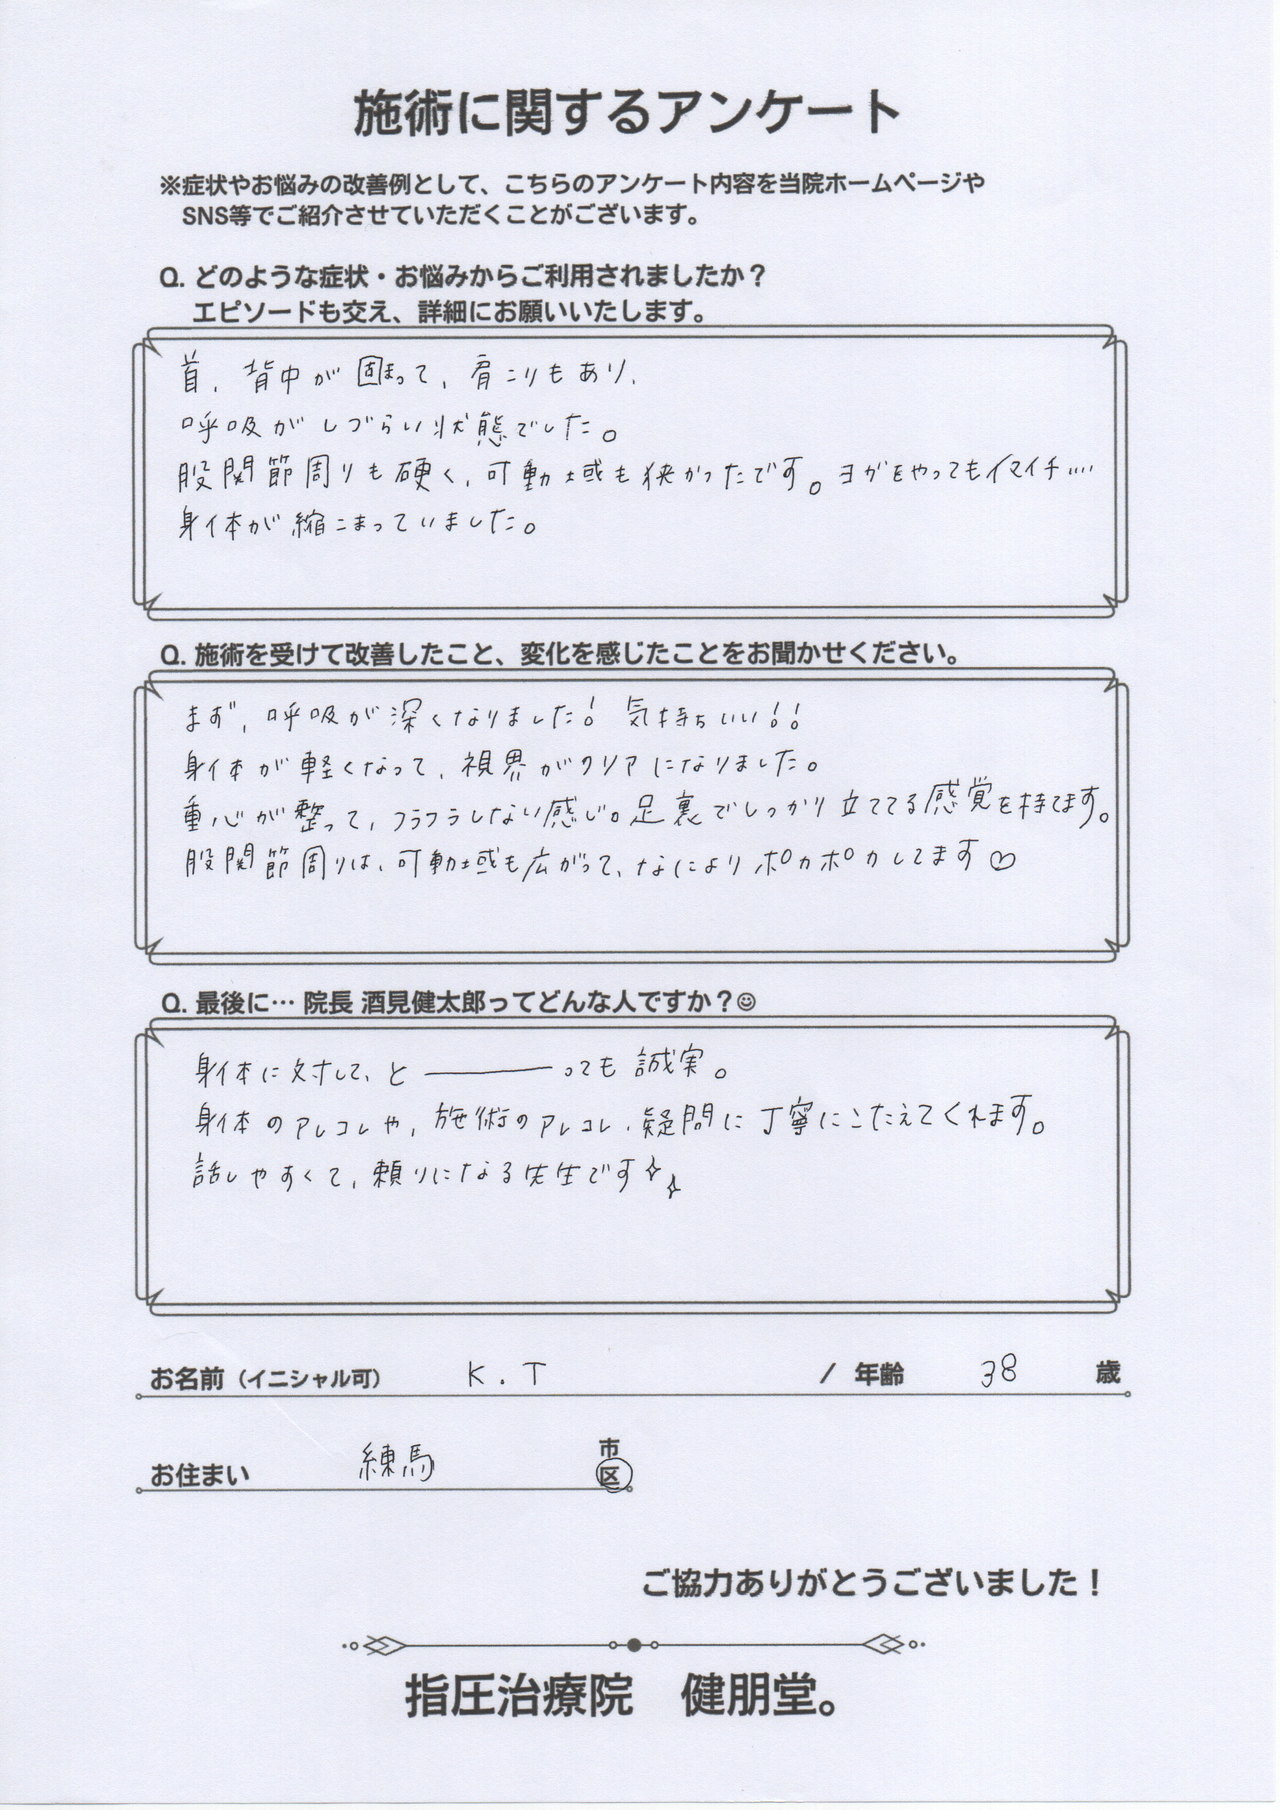 施術に関するアンケート
※症状やお悩みの改善例として、こちらのアンケート内容を当院ホームページや
SNS等でご紹介させていただくことがございます。
Q. どのような症状・お悩みからご利用されましたか？
エピソードも交え、詳細にお願いいたします。
首、背中が固まって、肩こりもあり、
呼吸がしづらい状態でした。
股関節周りも硬く、可動域も狭かったです。ヨガをやってもイマイチ….
身体が縮こまっていました。
Q. 施術を受けて改善したこと、変化を感じたことをお聞かせください。
まず、呼吸が深くなりました！ 気持ちいい！！
身体が軽くなって、視界がクリアになりました。
重心が整って、フラフラしない感じ。足裏でしっかり立ててる感覚を持てます。
股関節周りは、可動域も広がって、なによりポカポカしてます♡
Q. 最後に… 院長 酒見健太郎ってどんな人ですか？☺
身体に対して、と―――――っても誠実。
身体のアレコレや、施術のアレコレ、疑問に丁寧にこたえてくれます。
話しやすくて、頼りになる先生です✧✧
お名前（イニシャル可） K.T / 年齢 38 歳
市
お住まい 練馬 区
ご協力ありがとうございました！
指圧治療院 健朋堂。